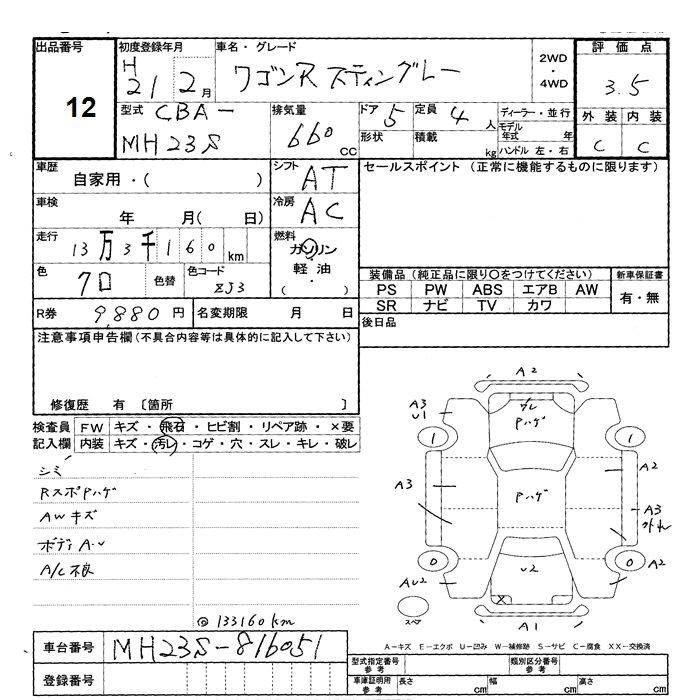 出品番号
12
初度登録年月
H 21 2月
車名・グレード
ワゴンR スティングレー
2WD
・
4WD
評価点
3.5
外装 内装
C C
型式 CBA-
MH23S
排気量
660 cc
ドア 5
定員 4 人
形状
積載 kg
ディーラー・並行
モデル年式 年
ハンドル 左・右
車歴
自家用・( )
シフト
AT
セールスポイント (正常に機能するものに限ります)
車検
年 月( 日)
冷房
AC
走行
13万3千160km
燃料
ガソリン
軽油
・
( )
色
色替
色コード
ZJ3
装備品 (純正品に限り○をつけてください)
新車保証書
PS PW ABS エアB AW
SR ナビ TV カワ
有・無
R券 9,880円
名変期限 月 日
後日品
注意事項申告欄(不具合内容等は具体的に記入して下さい)
修復歴 有 〔箇所 〕
検査員記入欄
FW キズ・飛石・ヒビ割・リペア跡・×要
内装 キズ・汚レ・コゲ・穴・スレ・キレ・破レ
シミ
RスポPハゲ
AWキズ
ボディA・U
A/C不良
@133160km
A2
A3
U1
ワレ
Pハゲ
1
1
A2
A3
Pハゲ
A3
0
0
A2
AU2
U2
X
スペア
A1
車台番号 MH23S-816051
登録番号
A-キズ E-エクボ U-凹み W-補修跡 S-サビ C-腐食 XX-交換済
型式指定番号
参考
類別区分番号
参考
車庫証明用
参考
長さ cm
幅 cm
高さ cm